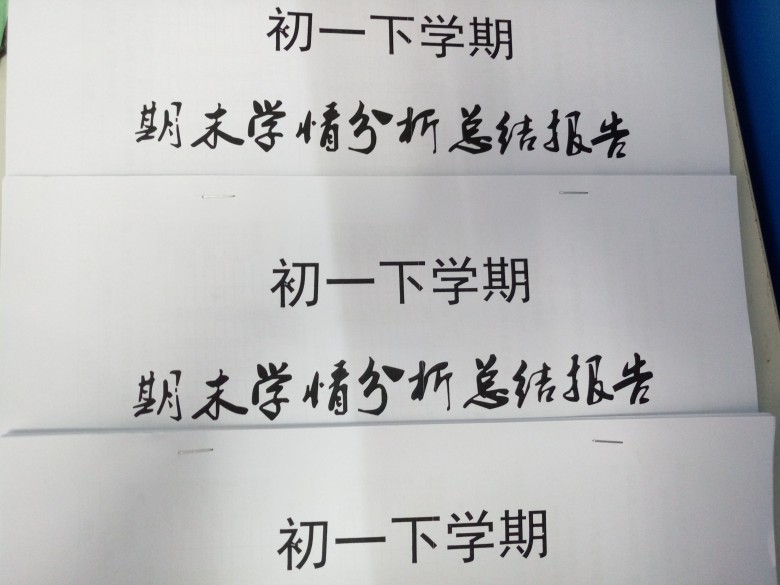 初一下学期
期末学情分析总结报告
初一下学期
期末学情分析总结报告
初一下学期